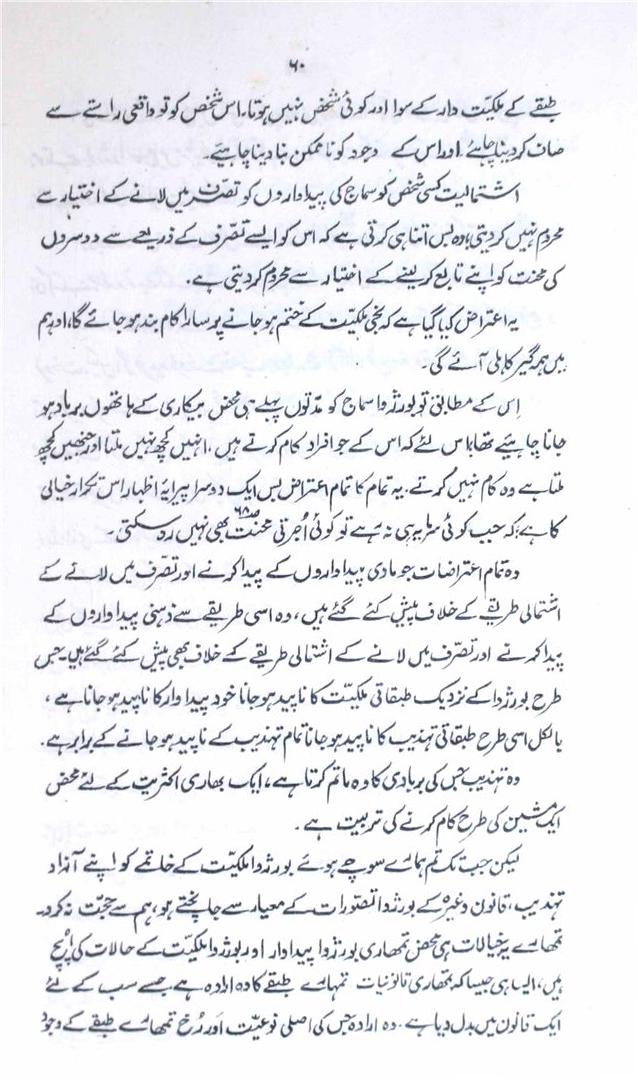 ۶۰
طبقے کے ملکیّت دار کے سوا اور کوئی شخص نہیں ہوتا، اس شخص کو تو واقعی راستے سے
صاف کر دینا چاہئے اور اس کے وجود کو ناممکن بنا دینا چاہیئے۔
اشتمالیت کسی شخص کو سماج کی پیداواروں کو تصرّف میں لانے کے اختیار سے
محروم نہیں کر دیتی! وہ بس اتنا ہی کرتی ہے کہ اس کو ایسے تصرف کے ذریعے سے دوسروں
کی محنت کو اپنے تابع کر لینے کے اختیار سے محروم کر دیتی ہے۔
یہ اعتراض کیا گیا ہے کہ نجی ملکیت کے ختم ہو جانے پر سارا کام بند ہو جائے گا، اور ہم
میں ہمہ گیر کاہلی آئے گی۔
اِس کے مطابق تو بورژوا سماج کو مدّتوں پہلے ہی محض بیکاری کے ہاتھوں برباد ہو
جانا چاہیئے تھا! اس لئے کہ اس کے جو افراد کام کرتے ہیں، انہیں کچھ نہیں ملتا اور جنھیں کچھ
ملتا ہے وہ کام نہیں کرتے۔ یہ تمام کا تمام اعتراض بس ایک دوسرا پیرایۂ اظہار اس تکرار خیالی
کا ہے؛ کہ جب کوئی سرمایہ ہی نہ ہے تو کوئی اُجرتی محنت بھی نہیں رہ سکتی۔
وہ تمام اعتراضات جو مادی پیداواروں کے پیدا کرنے اور تصرف میں لانے کے
اشتمالی طریقے کے خلاف پیش کئے گئے ہیں، وہ اسی طریقے سے ذہنی پیداواروں کے
پیدا کرنے اور تصرّف میں لانے کے اشتمالی طریقے کے خلاف بھی پیش کئے گئے ہیں۔ جس
طرح بورژوا کے نزدیک طبقاتی ملکیّت کا ناپید ہو جانا خود پیداوار کا ناپید ہو جانا ہے،
بالکل اسی طرح طبقاتی تہذیب کا ناپید ہو جانا تمام تہذیب کے ناپید ہو جانے کے برابر ہے۔
وہ تہذیب جس کی بربادی کا وہ ماتم کرتا ہے، ایک بھاری اکثریت کے لئے محض
ایک مشین کی طرح کام کرنے کی تربیت ہے۔
لیکن جب تک تم ہمارے سوچے ہوئے بورژوا ملکیّت کے خاتمے کو اپنے آزاد
تہذیب، قانون وغیرہ کے بورژوا تصّورات کے معیار سے جانچتے ہو، ہم سے حجت نہ کرو۔
تمھارے یہ خیالات ہی محض تمھاری بورژوا پیداوار اور بورژوا ملکیّت کے حالات کی اُپج
ہیں، ایسا ہی جیسا کہ تمھاری قانونیات تمہارے طبقے کا وہ ارادہ ہے جسے سب کے لئے
ایک قانون میں بدل دیا ہے۔ وہ ارادہ جس کی اصلی نوعیّت اور رُخ تمھارے طبقے کے وجود